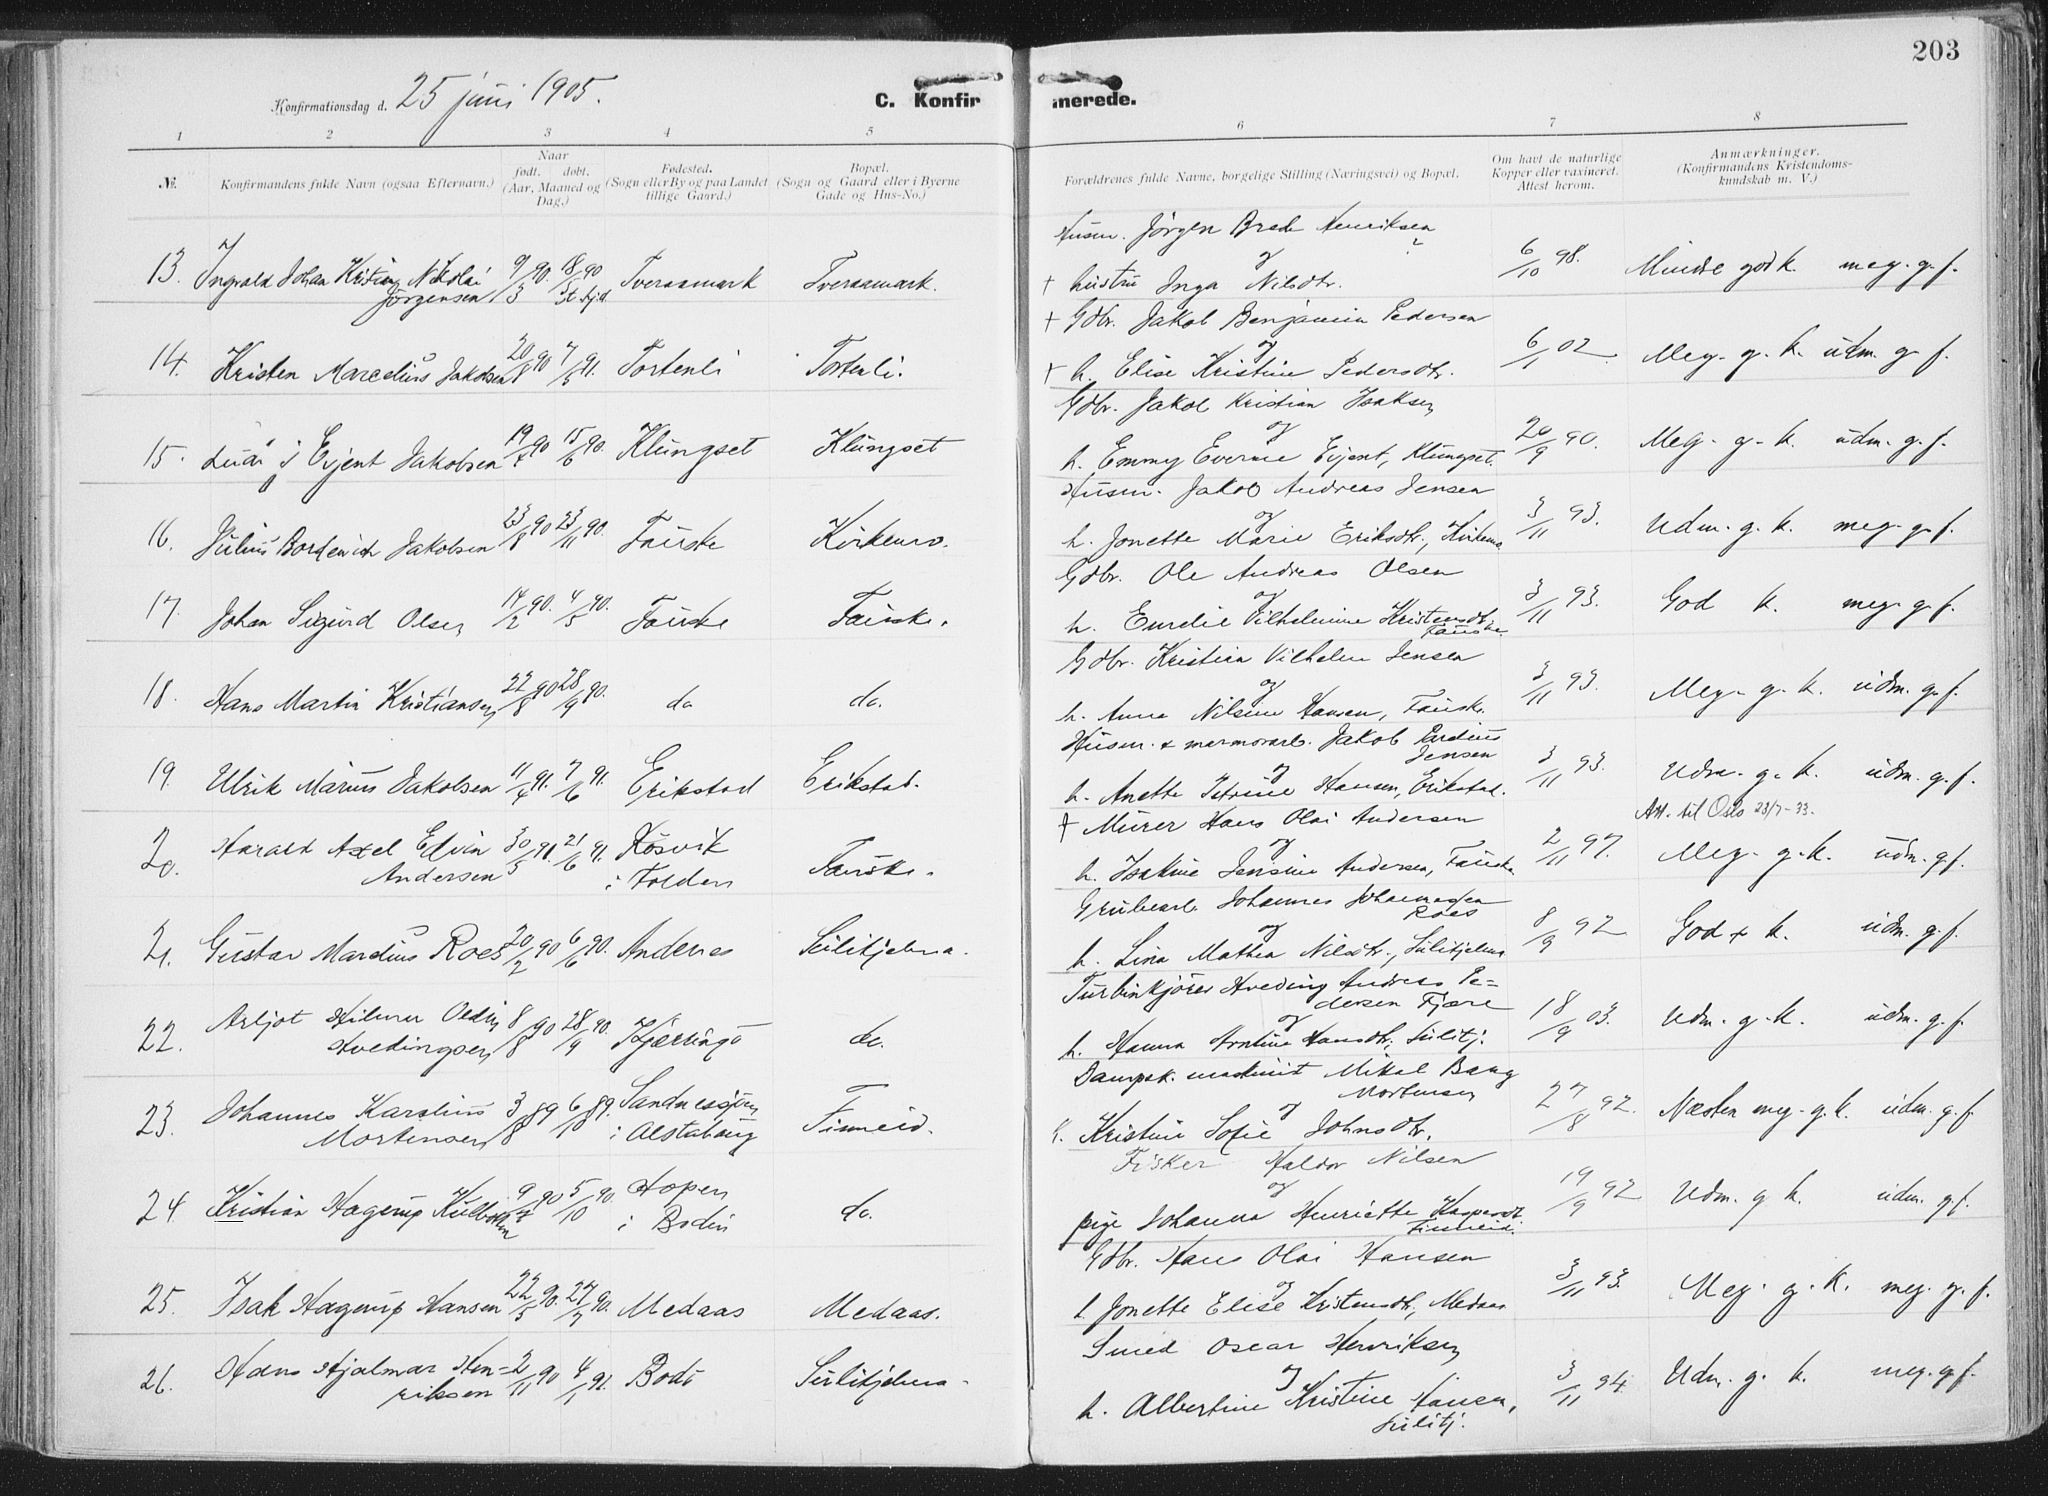 203
Konfirmationsdag d. 25 juni 1905.
C. Konfirmerede.
1 2 3 4 5 6 7 8
№.
Konfirmandens fulde Navn (ogsaa Efternavn.)
Naar
født. døbt.
(Aar, Maaned og
Dag.)
Fødested.
(Sogn eller By og paa Landet
tillige Gaard.)
Bopæl.
(Sogn og Gaard eller i Byerne
Gade og Hus-No.)
Forældrenes fulde Navne, borgelige Stilling (Næringsvei) og Bopæl.
Om havt de naturlige
Kopper eller vaxineret.
Attest herom.
Anmærkninger.
(Konfirmandens Kristendoms-
kundskab m. V.)
Husm. Jörgen Brede Henriksen
og
13. Ingvald Johan Nikolai 9/3 90. 18/5 90 Tveraamark Tveraamark. † hustru Inga Nilsdtr. 6/10 98. Mindre god k. meg. g. f.
Jörgensen st. hjd.
† Gdbr. Jakob Benjamin Pedersen
og
14. Kristen Marcelius Jakobsen 20/8 90 7/5 91. Tortenli Tortenli. † h. Elise Kristine Pedersdtr. 6/1 02. Meg. g. k. udm. g. f.
Gdbr. Jakob Kristian Isaksen
og
15. Evjent Jakobsen 19/4 90 15/6 90. Klungset Klungset h. Emmy Evjent, Klungset. 20/9 90. Meg. g. k. udm. g. f.
Husm. Jakob Andreas Jensen
og
16. Julius Jakobsen 23/8 90 23/11 90. Fauske Kirkemo. h. Jonette Marie Eriksdtr., Kirkemo 3/11 93. Udm. g. k. meg. g. f.
Gdbr. Ole Andreas Olsen
og
17. Johan Sigurd Olsen 14/2 90. 4/5 90. Fauske Fauske. h. Emelie Vilhelmine Kristensdtr. 3/11 93. God k. meg. g. f.
Fauske
Gdbr. Kristian Vilhelm Jensen
og
18. Hans Martin Kristiansen 22/8 90 28/9 90. do do. h. Anna Nilsine Hansen, Fauske. 3/11 93. Meg. g. k. udm. g. f.
Husm. & marmorarb. Jakob Pardius
Jensen
og
19. Ulrik Marius Jakobsen 11/4 91. 7/6 91. Erikstad Erikstad. h. Anette Petrine Hansen, Erikstad. 3/11 93. Udm. g. k. udm. g. f.
Att. til Oslo 23/7-33.
† Murer Hans Olai Andersen
og
20. Harald Axel Edvin 30/5 91. 21/6 91. Røsvik Fauske. h. Isakine Jensine Andersen, Fauske 2/11 97. Meg. g. k. udm. g. f.
Andersen i Folden
Grubearb. Johannes Johannessen
Roes
og
21. Gustav Mardius Roes 20/2 90 6/6 90. Andenes Sulitjelma. h. Lina Mathea Nilsdtr., Sulitjelma 8/9 92 God + k. udm. g. f.
Turbinkjörer Hveding Andreas Pe=
dersen Fjære
og
22. Arljot Hilmer Oldin 8/8 90 28/9 90. Kjærringö do. h. Hanna Arntine Hansdtr., Sulitj. 18/9 03. Udm. g. k. udm. g. f.
Hvedingsen
Dampsk. maskinist Mikal Bang
Mortensen
og
23. Johannes Karelius 3/8 89 6/10 89. Sandnessjöen Finneid. h. Kristine Sofie Johnsdtr. 27/8 92. Næsten meg. g. k. udm. g. f.
Mortensen i Alstahaug
Fisker Haldor Nilsen
og
24. Kristian Hagerup 9/4 90 5/10 90. Hopen do. pige Johanna Henriette Kaspersdt. 19/9 92 Udm. g k. udm. g. f.
i Bodin Finneid.
Gdbr. Hans Olai Hansen
og
25. Isak Hagerup Hansen 22/5 90. 27/7 90. Medaas Medaas. h. Jonette Elise Kristensdtr., Medaas 3/11 93. Meg. g. k. meg. g. f.
Smed Oscar Henriksen
og
26. Hans Hjalmar Hen= 2/11 90 4/1 91. Bodö Sulitjelma. h. Albertine Kristine Hansen, 3/11 94. Udm. g. k. meg. g. f.
riksen Sulitj.